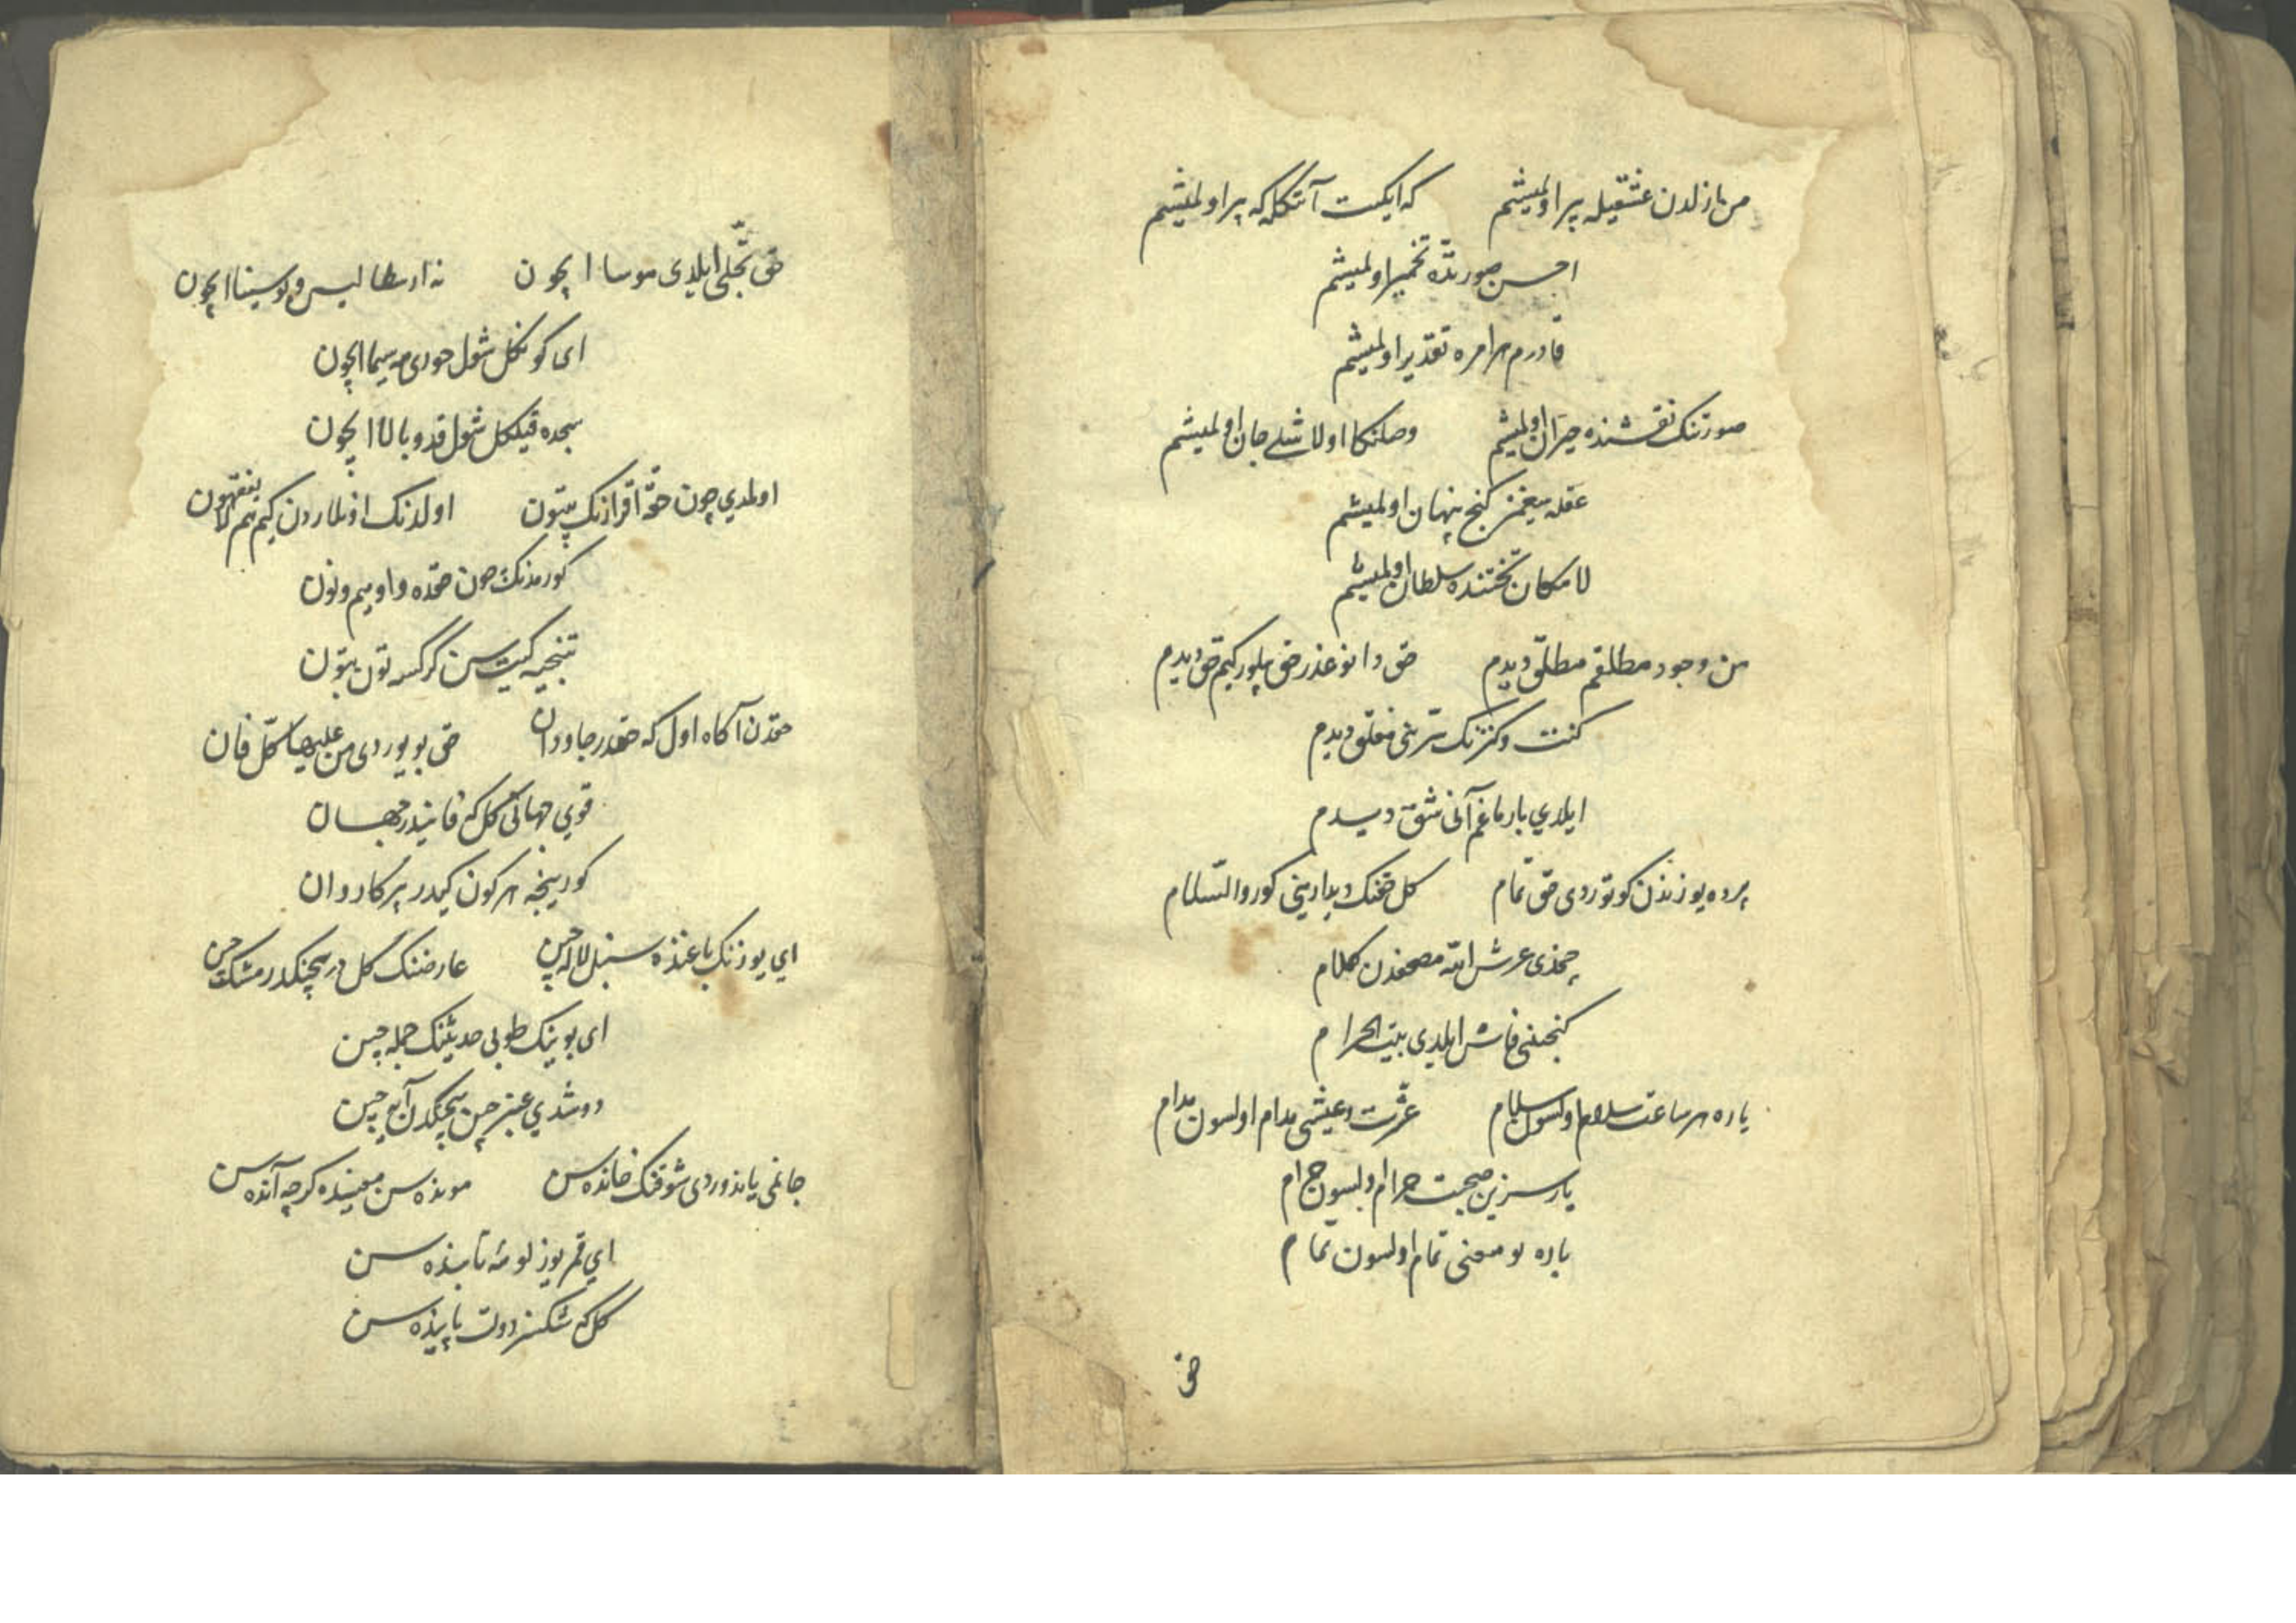 من ازلدن عشقیله پیر اولمیشم که ایکیت آنکله که پیر اولمیشم
احسن صورتده تخمیر اولمیشم
قادرم هر امره تقدیر اولمیشم
صورتنک نقشنده حیران اولمیشم وصلنکا اولاشلی جان اولمیشم
عقله سیغمز کنج پنهان اولمیشم
لامکان تختنده سلطان اولمیشم
من وجود مطلقم مطلق دیدم حق دانوغدر حق بیلور کیم حق دیدم
کنت و کنزنک سرینی مغلق دیدم
ایلدي بارماغم آنی شق دیدم
پرده یوزندن کوتوردی حق تمام کل حقنک دیدارینی کور والسلام
چخدی عرش الله مصحفدن کلام
کنجنی فاش ایلدی بیت الحرام
یاره هر ساعت سلام اولسون سلام عشرت و عیشی مدام اولسون مدام
یارسزین صحبت حرام اولسون حرام
یاره بو معنی تمام اولسون تمام
حق
حق تجلی ایلدی موسا ایچون نه ارسطالیس و بوسینا ایچون
ای کونکل شول حوری مه سیما ایچون
سجده قیلکل شول قد و بالا ایچون
اولمدي چون حقه اقرارنک بتون اولدنک اونلاردن کیم هم لا یفقهون
کورمدنک چون حقده واو میم و نون
کیت سن کرکسه تون بتون
حقدن آکاه اول که حقدر جاودان حق بویوردی من علیها کل فان
قوي جهانی کل که فانیدر جهان
کور نیجه هر کون کیدر بر کاروان
اي یوزنک باغنده سنبل لاله چین عارضنک کل در سچنکدر مشک چین
ای بوینک طوبی حدیثنک جمله چین
دوشدي عنبر چین سچنکدن آیه چین
جانمی یاندوردی شوقنک خانده سن مونده سن معنیده کرچه آنده سن
اي قمر یوزلو مه تابنده سن
کل که شکسز دولت پاینده سن